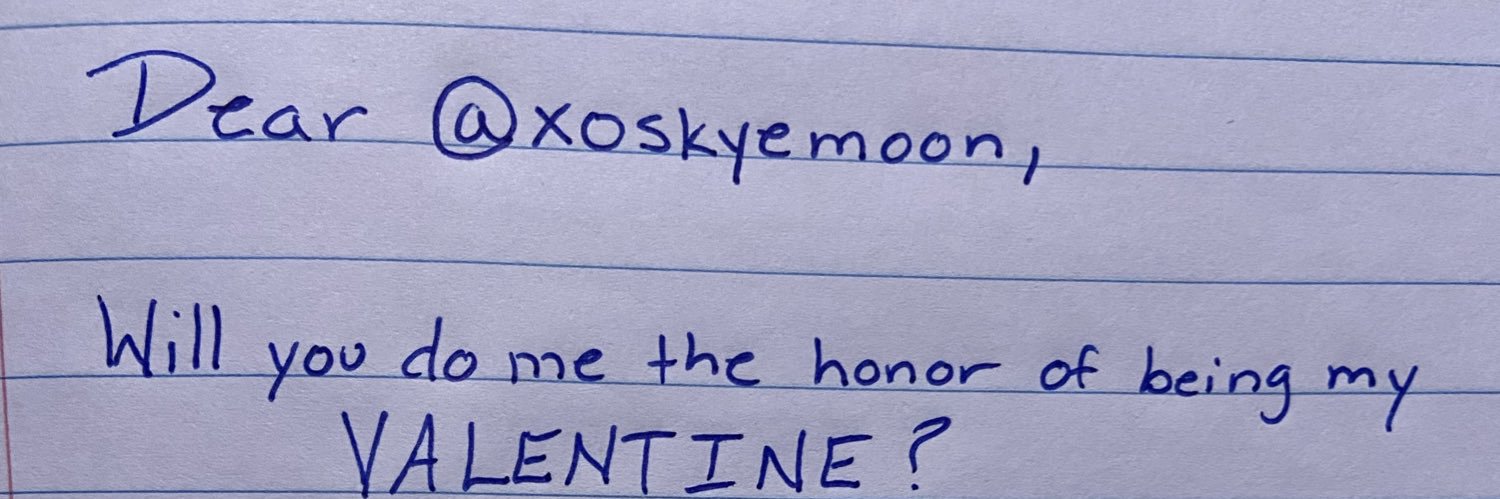 Dear @xoskyemoon,
Will you do me the honor of being my
VALENTINE?